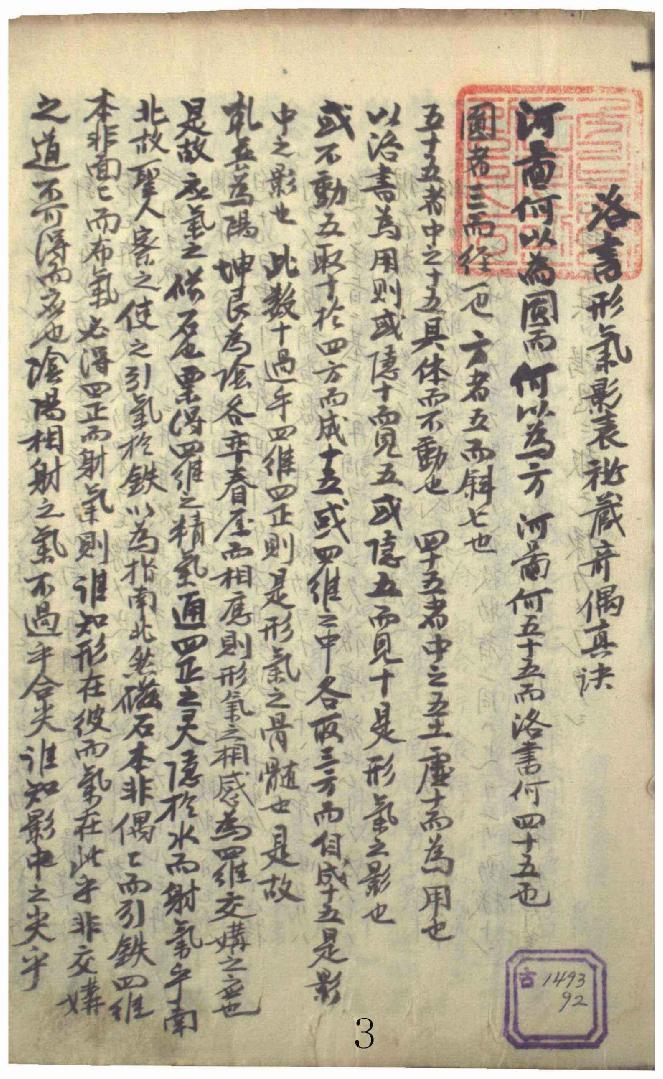 洛書形氣影表祕蔵奇偶真訣
河圖何以為圓而何以為方 河圖何五十五而洛書何四十五也
圓者三而径一也 方者五而斜七也
五十五者中之十五具体而不動也 四十五者中之五土虛十而為用也
以洛書為用則或隠十而見五或隠五而見十是形氣之影也
或不動五取十於四方而成十五或四維之中各取三方而自成十五是影
中之影也 此数十過乎四維四正則是形氣之骨髄也是故
乹巽為陽坤艮為陰各弃眷屋而相應則形氣之相感為四維交媾之
是故應氣之磁石也禀得四維之精氣通四正之灵隠於水而射氣乎南
北故聖人察之使之引氣於鉄以為指南北然磁石本非偶〻而引鉄四維
本非面〻而布氣必得四正而射氣則誰知形在彼而氣在此乎非交媾
之道不可得而應也陰陽相射之氣不過乎合尖誰知影中之尖乎
古 1493
92
3